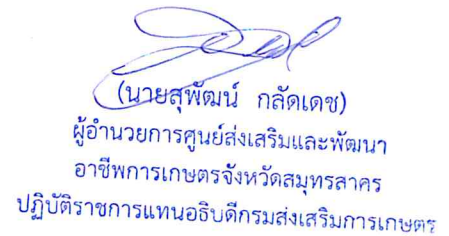 (นายสุพัฒน์ กลัดเดช)
ผู้อำนวยการศูนย์ส่งเสริมและพัฒนา
อาชีพการเกษตรจังหวัดสมุทรสาคร
ปฏิบัติราชการแทนอธิบดีกรมส่งเสริมการเกษตร